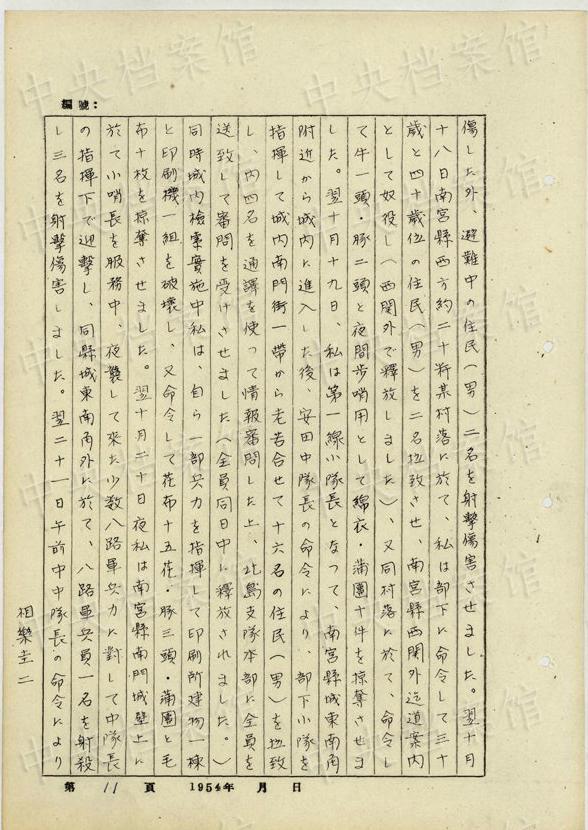 編號:
傷した外、避難中の住民(男)二名を射擊傷害させました。翌十月
十八日南宮縣西方約二十粁某村落に於て、私は部下に命令して三十
歲と四十歲位の住民(男)を二名拉致させ、南宮縣西関外迄道案内
として奴役し(西関外で釋放しました)、又同村落に於て、命令し
て牛一頭・豚二頭と夜間步哨用として綿衣・蒲團十件を掠奪させま
した。翌十月十九日、私は第一線小隊長となつて、南宮縣城東南角
附近から城内に進入した後、安田中隊長の命令により、部下小隊を
指揮して城内南門街一帶から老若合せて十六名の住民(男)を拉致
し、内四名を通譯を使って情報審問した上、北島支隊本部に全員を
送致して審問を受けさせました(全員同日中に釋放されました。)
同時城内檢索實施中私は、自ら一部兵力を指揮して印刷所建物一棟
と印刷機一組を破壞し、又命令して花布十五花・豚三頭・蒲團と毛
布十枚を掠奪させました。翌十月二十日夜私は南宮縣南門城壁上に
於て小哨長を服務中、夜襲して來た少数八路軍兵力に對して中隊長
の指揮下で迎擊し、同縣城東南角外に於て、八路軍兵員一名を射殺
し三名を射擊傷害しました。翌二十一日午前中中隊長の命令により
相樂圭二
第 11 頁 1954年 月 日
中央档案馆